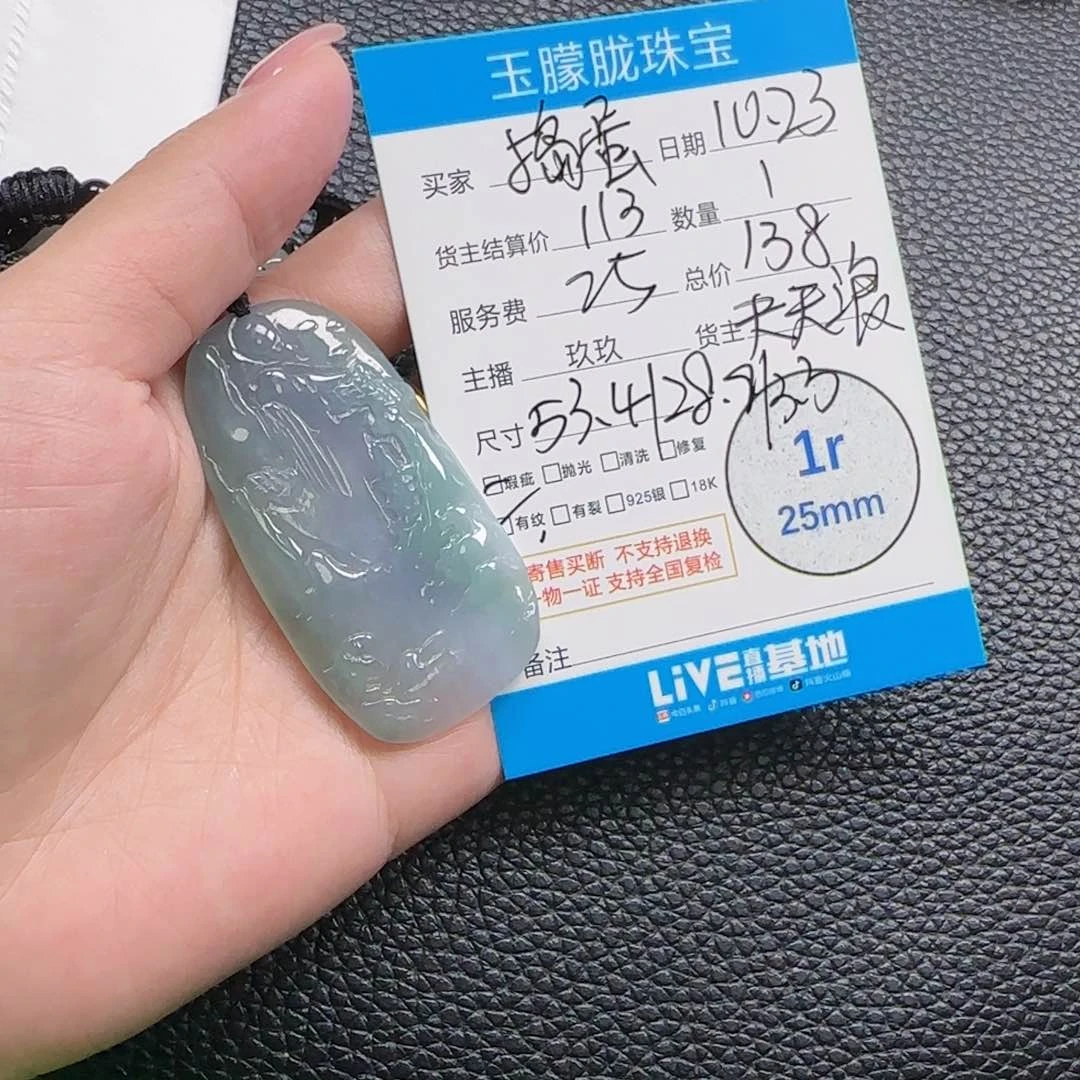 玉朦胧珠宝
买家 捣蛋 日期 10.23
货主结算价 113 数量 1
服务费 25 总价 138
主播 玖玖 货主 天天浪
尺寸 53.4/28.2/3.3
瑕疵 抛光 清洗 修复
有纹 有裂 925银 18K
1r
25mm
寄售买断 不支持退换
一物一证 支持全国复检
备注
LiVE直播基地
今日头条 抖音 西瓜视频 抖音火山版